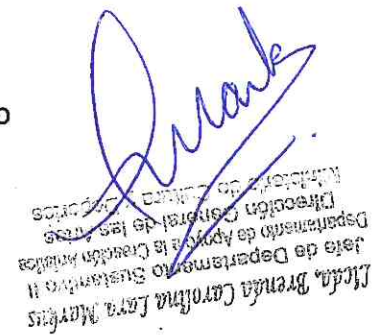 o
Mark
Licda. Brenda Carolina Lara Markus
Jefe de Departamento Sustantivo II
Departamento de Apoyo a la Creación Artística
Dirección General de las Artes
Ministerio de Cultura y Deportes